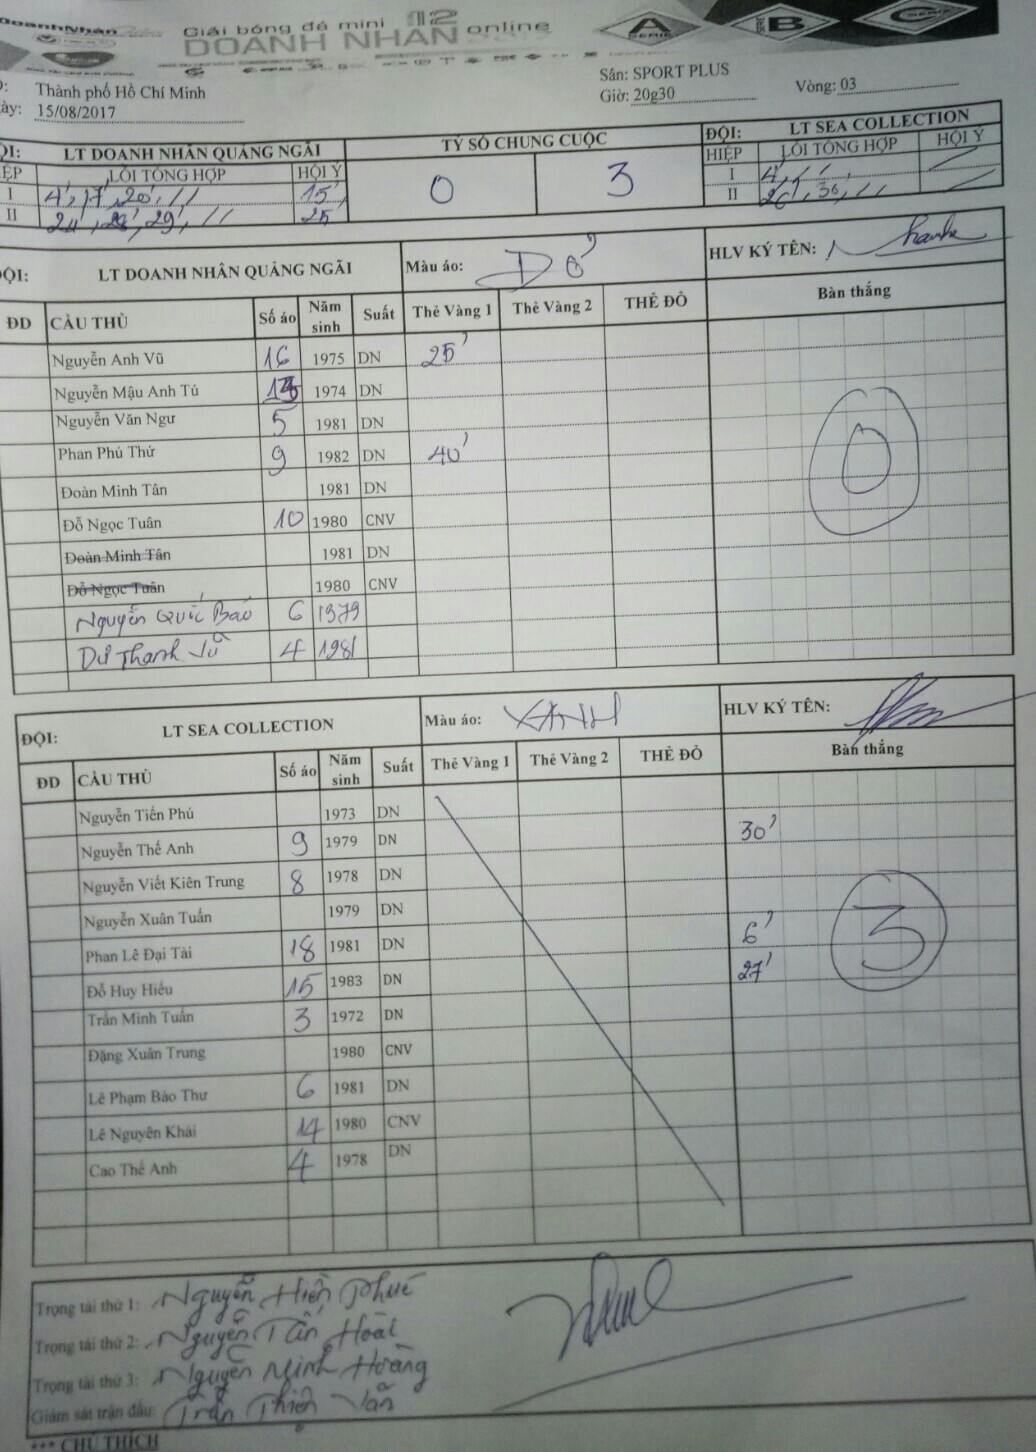 DoanhNhân Giải bóng đá mini 12 online
DOANH NHÂN
A SERIE SERIE B C SERIE
Thành phố Hồ Chí Minh Sân: SPORT PLUS Vòng: 03
ày: 15/08/2017 Giờ: 20g30
ỘI: LT DOANH NHÂN QUẢNG NGÃI TỶ SỐ CHUNG CUỘC ĐỘI: LT SEA COLLECTION
IỆP LỖI TỔNG HỢP HỘI Ý 0 3 HIỆP LỖI TỔNG HỢP HỘI Ý
I 4', 17', 20', // 15' I 4', / /
II 24', 28', 29', // 25 II 26', 36, //
ĐỘI: LT DOANH NHÂN QUẢNG NGÃI Màu áo: ĐỎ HLV KÝ TÊN:
ĐD CẦU THỦ Số áo Năm sinh Suất Thẻ Vàng 1 Thẻ Vàng 2 THẺ ĐỎ Bàn thắng
Nguyễn Anh Vũ 16 1975 DN 25'
Nguyễn Mậu Anh Tú 1974 DN
Nguyễn Văn Ngư 5 1981 DN
Phan Phú Thứ 9 1982 DN 40' 0
Đoàn Minh Tân 1981 DN
Đỗ Ngọc Tuân 10 1980 CNV
Đoàn Minh Tân 1981 DN
Đỗ Ngọc Tuân 1980 CNV
Nguyễn Quốc Bảo 6 1979
Dư Thanh Vũ 4 1981
ĐỘI: LT SEA COLLECTION Màu áo: XANH HLV KÝ TÊN:
ĐD CẦU THỦ Số áo Năm sinh Suất Thẻ Vàng 1 Thẻ Vàng 2 THẺ ĐỎ Bàn thắng
Nguyễn Tiến Phú 1973 DN
Nguyễn Thế Anh 9 1979 DN 30'
Nguyễn Viết Kiên Trung 8 1978 DN
Nguyễn Xuân Tuấn 1979 DN
Phan Lê Đại Tài 18 1981 DN 6' 3
Đỗ Huy Hiếu 15 1983 DN 27'
Trần Minh Tuấn 3 1972 DN
Đặng Xuân Trung 1980 CNV
Lê Phạm Bảo Thư 6 1981 DN
Lê Nguyên Khải 14 1980 CNV
Cao Thế Anh 4 1978 DN
Trọng tài thứ 1: Nguyễn Hiền Phúc
Trọng tài thứ 2: Nguyễn Tấn Hoài
Trọng tài thứ 3: Nguyễn Minh Hoàng
Giám sát trận đấu: Trần Thiện Văn
*** CHÚ THÍCH